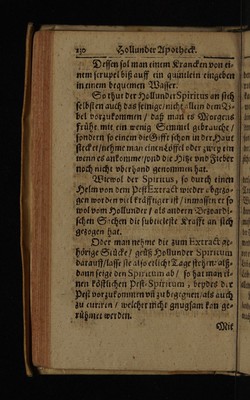 130 Hollunder Apotheck.
Dessen sol man einem Krancken von ei-
nem scrupel biß auff ein quintlein eingeben
in einem bequemen Wasser.
So thut der Hollunder Spiritus an sich
selbsten auch das seinige / nicht allein dem U-
bel vorzukommen / daß man es Morgens
frühe mit ein wenig Semmel gebrauche /
sondern so einem die Gifft schon in der Haut
stecket / nehme man einen Löffel oder zwey ein
wenn es ankomme / weil die Hitze und Fieber
noch nicht überhand genommen hat.
Wiewol der Spiritus, so durch einen
Helm von dem Pest Extract wieder abgezo-
gen worden viel kräfftiger ist / inmassen er so
wol vom Hollunder / als andern Bezoardi-
schen Sachen die subtieleste Krafft an sich
gezogen hat.
Oder man nehme die zum Extract ge-
hörige Stücke / geuß Hollunder Spiritum
darauff / lasse sie also etliche Tage stehen / als-
dann zeige den Spiritum ab / so hat man ei-
nen köstlichen Pest-Spiritum, beydes der
Pest vorzukommen uñ zu begegnen / als auch
zu curiren / welcher nicht gnugsam kan ge-
rühmet werden.
Mit